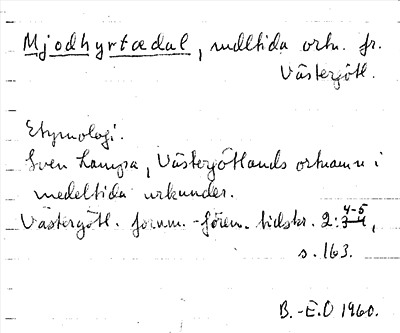 Mjodhyrtædal, mdltida ortn. fr.
Västergötl.
Etymologi.
Sven Lampa, Västergötlands ortnamn i
medeltida urkunder.
Västergötl. fornm.-fören. tidskr. 2:4-5,
s. 163.
B.-E.O 1960.